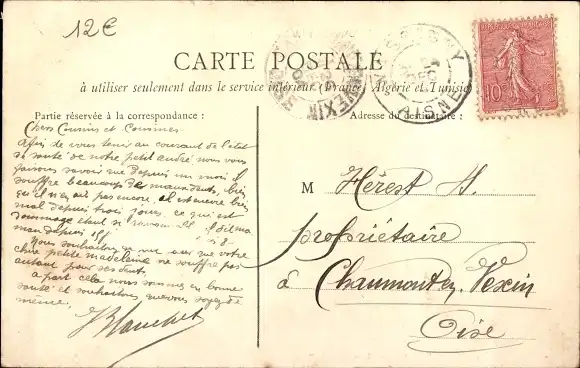 12€
CARTE POSTALE
à utiliser seulement dans le service intérieur (France, Algérie et Tunisie)
Partie réservée à la correspondance :
Adresse du destinataire :
Chers Cousins et Cousines
Afin de vous tenir au courant de l'état
de santé de notre petit andré nous vous
faisons savoir que depuis un mois il
souffre beaucoup de maux dents, bien
qu'il n'en ait pas encore, il est encore bien
mal depuis trois jours, ce qui est
dommage étant si
man depuis
Nous souhaitons que votre
chère petite madeleine ne souffre pas
autant pour ses dents.
à part cela nous sommes en bonne
santé et souhaitons que vous soyez de
même.
Blanchet
M Hérest H.
propriétaire
à Chaumont en Vexin
Oise
10
AISNE
VEXIN